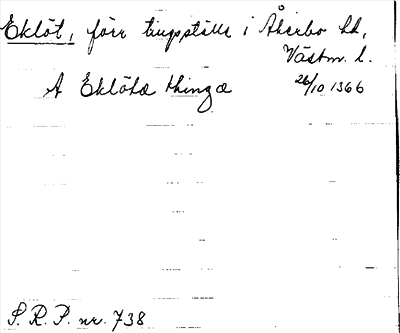 Eklöt, förr tingställe i Åkerbo hd,
Västm. l.
A Eklöta thinge 26/10 1366
S. R. P. nr. 738